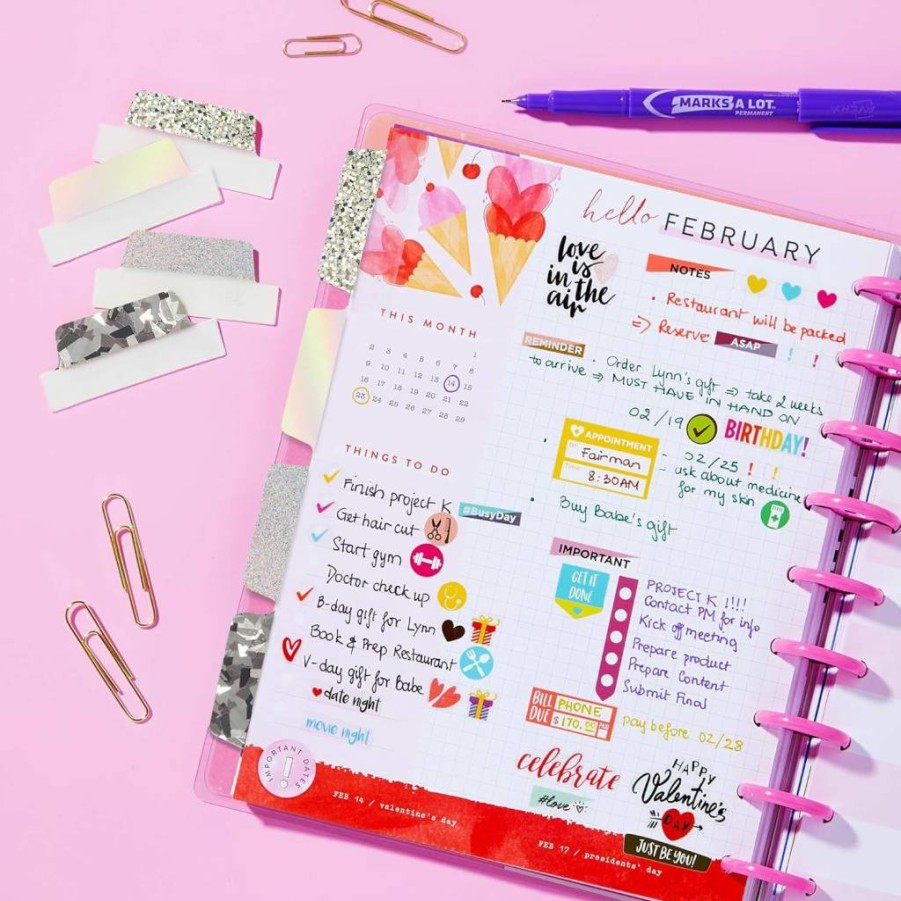 MARKS A LOT.
PERMANENT
AVERY
hello FEBRUARY
love
is
in the
air
NOTES
• Restaurant will be packed
=> Reserve ASAP ! !
THIS MONTH
1
2 3 4 5 6 7 8
9 10 11 12 13 14 15
16 17 18 19 20 21 22
23 24 25 26 27 28 29
REMINDER
• Order Lynn's gift => take 2 weeks
to arrive => MUST HAVE IN HAND ON
02/19 BIRTHDAY!
APPOINTMENT
Fairman
8:30AM
- 02/25 ! !
- ask about medicine
for my skin
• Buy Babe's gift
THINGS TO DO
Finish project K #BusyDay
Get hair cut
Start gym
Doctor check up
B-day gift for Lynn
Book & Prep Restaurant
V-day gift for Babe
date night
movie night
IMPORTANT
GET IT
DONE
PROJECT K !!!!
Contact PM for info
Kick off meeting
Prepare product
Prepare Content
Submit Final
BILL
DUE
PHONE
$170.00
pay before 02/28
celebrate
#love
HAPPY
Valentine's
DAY
JUST BE YOU!
IMPORTANT DATES
!
FEB 14 / valentine's day
FEB 17 / presidents' day